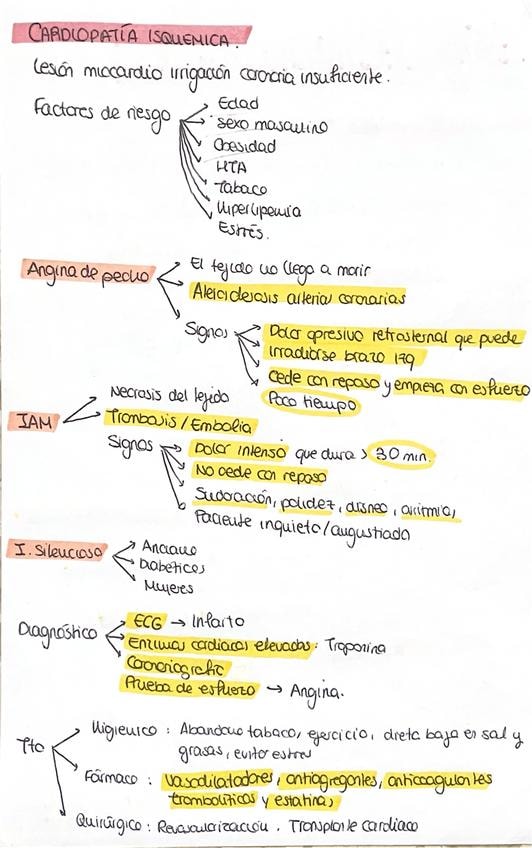 CARDIOPATÍA ISQUEMICA.
Lesión miocardio irrigación coronaria insuficiente.
Factores de riesgo
Edad
Sexo masculino
Obesidad
HTA
Tabaco
Hiperlipemia
Estrés.
Angina de pecho
El tejido no llega a morir
Aterosclerosis arterias coronarias
Signos
Dolor opresivo retrosternal que puede
irradiarse brazo izq
Cede con reposo y empieza con esfuerzo
Poco tiempo
IAM
Necrosis del tejido
Trombosis / Embolia
Signos
Dolor intenso que dura > 30 min.
No cede con reposo
Sudoración, palidez, disnea, arritmia,
Paciente inquieto/angustiado
I. Silencioso
Anciano
Diabéticos
Mujeres
Diagnóstico
ECG → Infarto
Enzimas cardiacas elevadas: Troponina
Coronariografía
Prueba de esfuerzo → Angina.
Tto
Higienico : Abandono tabaco, ejercicio, dieta baja en sal y
grasas, evitar estres
Fármaco : vasodilatadores, antiagregantes, anticoagulantes
trombolíticos y estatinas
Quirúrgico : Revascularización . Transplante cardiaco